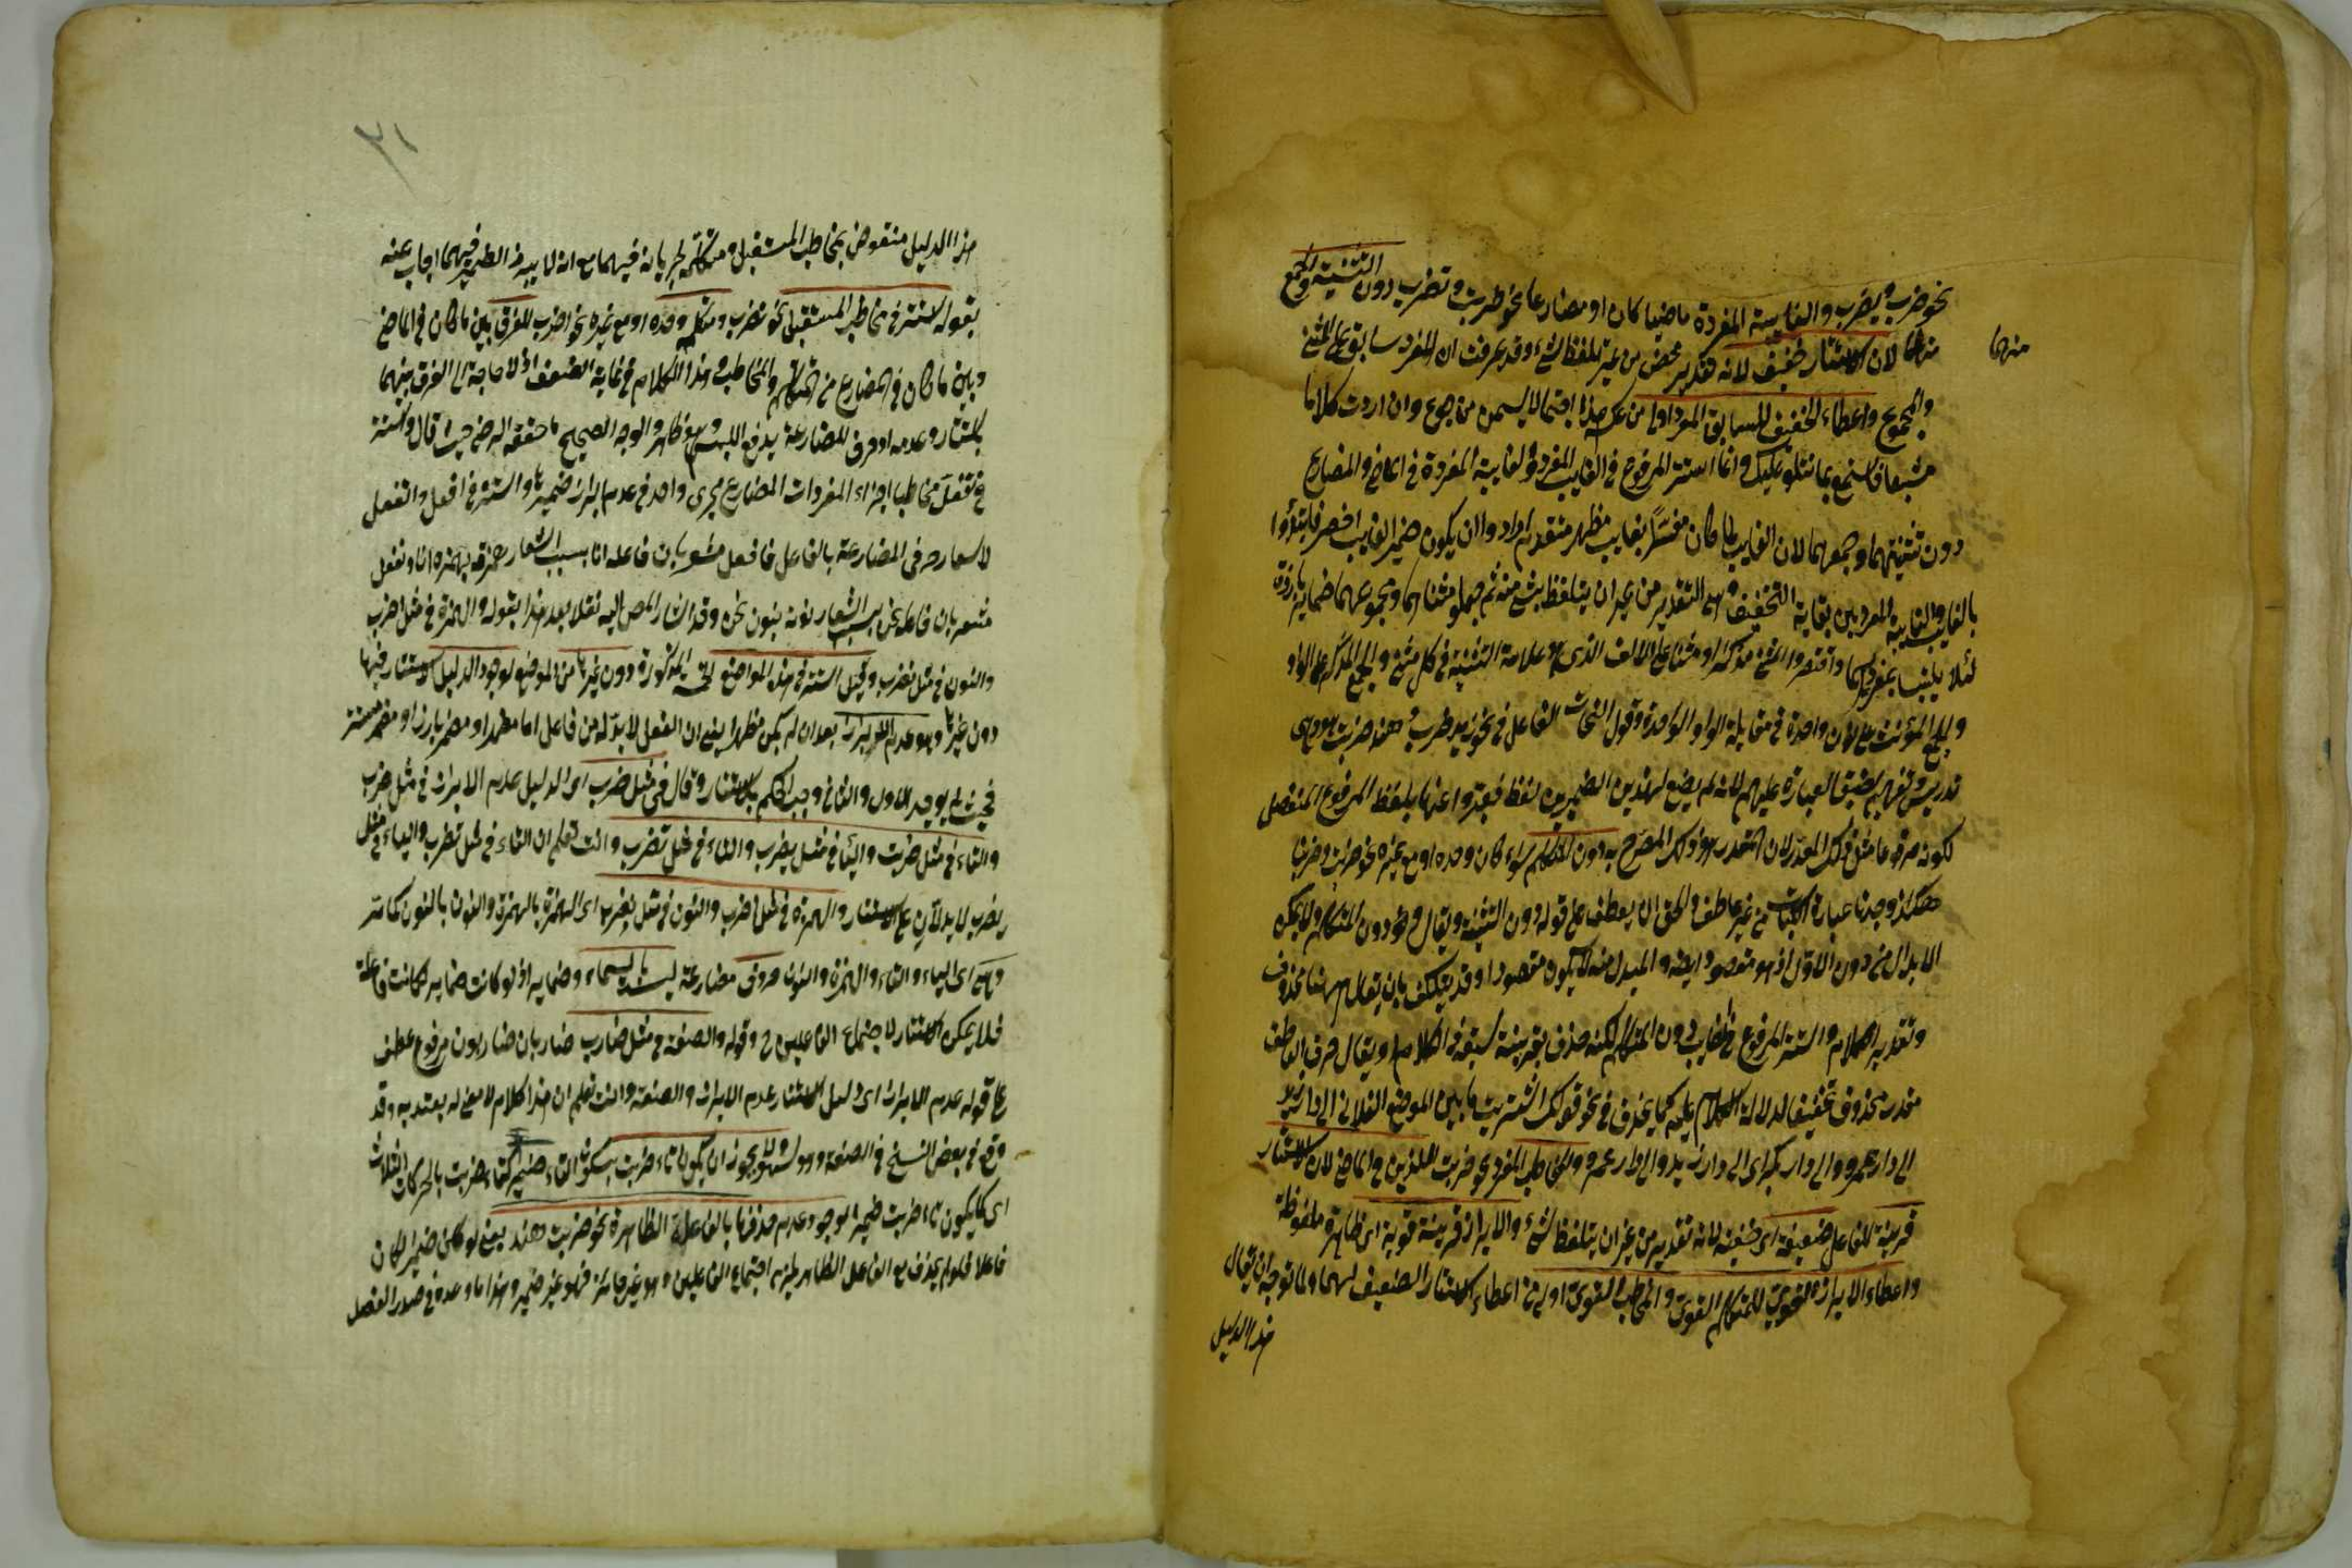 نحو ضرب ويضرب والغايبية المفردة ماضيا كان او مضارعا نحو ضربت وتضرب دون التثنية والجمع
منهما
منهما لان الاستتار خفيف لانه تقدير محض من غير تلفظ شيء وقد عرفت ان المفرد سابق على المثنى
والمجموع واعطاء الخفيف للسابق المفرد اولى من عكسه وان اردت كلاما
مشبعا فاستمع بما نتلو عليك وانما استتر المرفوع في الغايب المفرد والغايبة المفردة في الماضي والمضارع
دون تثنيتهما وجمعهما لان الغايب لما كان مفسرا بغايب مظهر متقدم ارادوا ان يكون ضمير الغايب اخصر فابتدؤا
بالغايب والغايبة المفردين بغاية التخفيف وهي التقدير من غير ان يتلفظ بشيء منه ثم جعلوا مثناهما ومجموعهما ضماير بارزة
لئلا يلتبسا بمفرديهما واقتصروا المثنى مذكرا او مؤنثا على الالف الذي هو علامة التثنية في كل مثنى والجمع المذكر على الواو
والجمع المؤنث على نون واحدة في مقابلة الواو الواحدة وقول النحات الفاعل في نحو زيد ضرب وهند ضربت هو وهي
تدريس وتفهيم لضيق العبارة عليهم لانه لم يضع لهذين الضميرين لفظ فعبروا عنهما بلفظ المرفوع المنفصل
لكونه مرفوعا مثل ذلك المقدر لان المقدر هو ذلك المصرح به دون المتكلم سواء كان وحده او مع غيره نحو ضربت وضربنا
هكذا وجدنا عبارة الكتاب من غير عاطف والحق ان يعطف على قوله دون التثنية ويقال ودون المتكلم ولا يمكن
الابدال من دون الاول اذ هو مقصود ايضا والمبدل منه لا يكون مقصودا وقد يتكلف بان يقال ههنا محذوف
وتقدير الكلام واستتر المرفوع في الغايب دون المتكلم لكنه حذف بقرينة سبقه في الكلام او يقال حرف العاطف
مقدر محذوف تخفيفا لدلالة الكلام عليه كما يحذف في نحو قولك اشتريت ما بين الموضع الفلاني الى دار زيد
الى دار عمرو والى دار بكر اي الى دار زيد والى دار عمرو والمخاطب المفرد نحو ضربت اللذين في الماضي لان الاستتار
قرينة للفاعل ضعيفة اي خفيفة لانه تقدير من غير ان يتلفظ شيء والابراز قرينة قوية اي ظاهرة ملفوظة
واعطاء الابراز القوي للمتكلم القوي والمخاطب القوي اولى من اعطاء الاستتار الضعيف لهما ولما توجه ان يقال
هذا الدليل
٢١
هذا الدليل منقوض بمخاطب المستقبل ومتكلمه لجريانه فيهما مع انه لا يبرز الضمير فيهما اجاب عنه
بقوله استتر في مخاطب المستقبل نحو تضرب ومتكلم وحده او مع غيره نحو اضرب للفرق بين ما كان في الماضي
وبين ما كان في المضارع من المتكلم والمخاطب وهذا الكلام في غاية الضعف اذ لا حاجة الى الفرق بينهما
بالاستتار وعدمه اذ حرف المضارعة يدفع اللبس وهو ظاهر والوجه الصحيح ما حققه الرضي حيث قال واستتر
في تفعل مخاطبا اجراء المفردات المضارع مجرى واحد في عدم ابراز ضميرها واستتر في افعل ونفعل
لاشعار حرفي المضارعة بالفاعل فافعل مشعر بان فاعله انا بسبب اشعار همزته بهمزة انا ونفعل
مشعر بان فاعله نحن بسبب اشعار نونه بنون نحن وقد اشار المص اليه نقلا بعد هذا بقوله والهمزة في مثل اضرب
والنون في مثل نضرب وقيل استتر في هذه المواضع الخمسة المذكورة دون غيرها من المواضع لوجود الدليل للاستتار فيها
دون غيرها وهو عدم الابراز بعد ان لم يكن مظهرا يعني ان الفعل لا بد له من فاعل اما مظهر او مضمر بارز او مضمر مستتر
فحيث لم يوجد الاول والثاني وجب الحكم بالاستتار وقال في مثل ضرب اي الدليل عدم الابراز في مثل ضرب
والتاء في مثل ضربت والياء في مثل يضرب والتاء في مثل تضرب وانت تعلم ان التاء في مثل تضرب والياء في مثل
يضرب لا يدلان على الاستتار والهمزة في مثل اضرب والنون في مثل نضرب اي الهمزة بالهمزة والنون بالنون كما مر
وهي اي الياء والتاء والهمزة والنون حروف مضارعة ليست باسماء وضماير اذ لو كانت ضماير لكانت فاعلة
فلا يمكن الاستتار لاجتماع الفاعلين ح وقوله والصفة في مثل ضارب ضاربان ضاربون مرفوع عطف
على قوله عدم الابراز اي دليل الاستتار عدم الابراز والصفة وانت تعلم ان هذا كلام لا معنى له يعتد به وقد
وقع في بعض النسخ في الصفة وهو سهو ولا يجوز ان يكون تاء ضربت بسكون التاء ضميرا كتاء ضربت بالحركات الثلاث
اي كما يكون تاء ضربت ضميرا لوجود عدم حذفها بالفاعلة الظاهرة نحو ضربت هند يعني لو كان ضميرا لكان
فاعلا فلو لم يحذف مع الفاعل الظاهر يلزم اجتماع الفاعلين وهو غير جائز فهو غير ضمير وهذا ما وعده في صدر الفصل